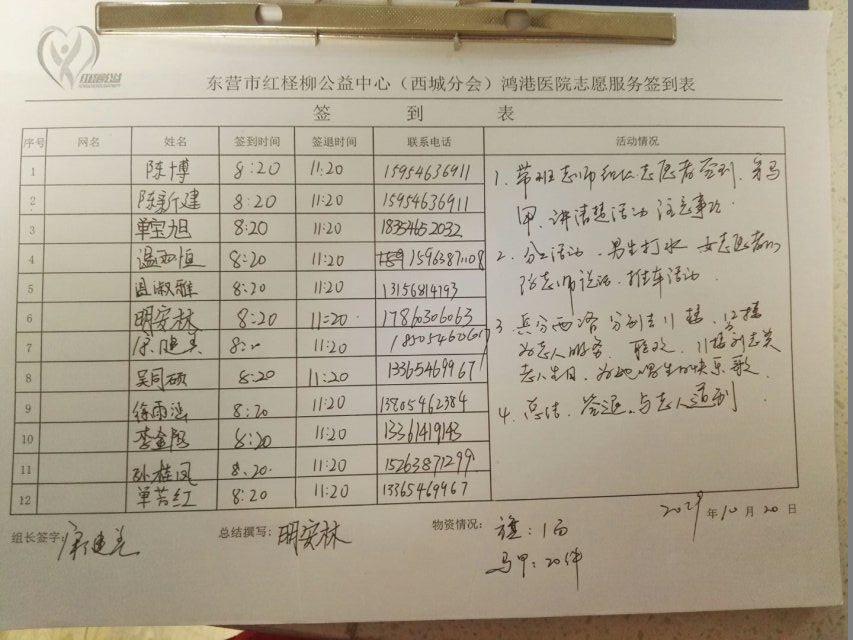 东营市红柽柳公益中心（西城分会）鸿港医院志愿服务签到表
签 到 表
序号 网名 姓名 签到时间 签退时间 联系电话 活动情况
1 陈博 8:20 11:20 15954636911
2 陈新建 8:20 11:20 15954636911
3 单宝旭 8:20 11:20 18354652032
4 8:20 11:20 15963871108
5 8:20 11:20 13156814793
6 明安林 8:20 11:20 17860306063
7 11:20
8 吴同硕 8:20 11:20 13365469967
9 徐雨涵 8:20 11:20 13805462384
10 8:20 11:20 13361419143
11 孙桂凤 8:20 11:20 15263871299
12 单芳红 8:20 11:20 13365469967
1. 带班老师组织志愿者签到、穿马
甲、讲清楚活动注意事项.
2. 分工活动、男生打水 女志愿者
老师说话、推车活动.
3. 兵分两路分别去11楼、12楼
为老人服务、
老人生日、为她唱生日快乐歌.
4. 总结、签退、与老人道别
2019年10月20日
组长签字:
总结撰写: 明安林
物资情况: 旗: 1面
马甲: 20件